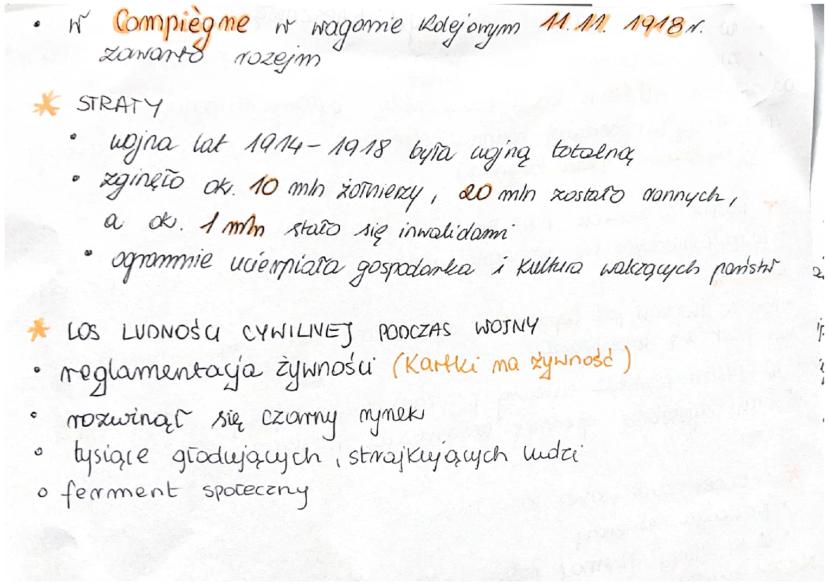 • w Compiègne w wagonie kolejowym 11.11.1918 r.
zawarto rozejm
* STRATY
• wojna lat 1914-1918 była wojną totalną
• zginęło ok. 10 mln żołnierzy, 20 mln zostało rannych,
a ok. 1 mln stało się inwalidami
• ogromnie ucierpiała gospodarka i kultura walczących państw
* LOS LUDNOŚCI CYWILNEJ PODCZAS WOJNY
• reglamentacja żywności (kartki na żywność)
• rozwinął się czarny rynek
• tysiące głodujących i strajkujących ludzi
• ferment społeczny